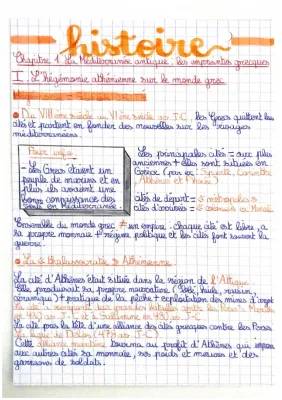 histoire
Chapitre 1 La Méditerranée antique, les empreintes grecques
I. L'hégémonie athénienne sur le monde grec
Du VIIIème siècle au VIème siècle av J-C, les Grecs quittent les
cités et partent en fonder des nouvelles sur les rivages
méditerranéens.
Pour info :
- Les Grecs étaient un
peuple de marins et en
plus ils avaient une
bonne connaissance des
vents en Méditerranée.
Les principales cités = avec plus
anciennes + elles sont situées en
Grèce (par ex : Sparte, Corinthe,
Athènes et Phocée)
cités de départ = métropoles
Ensemble du monde grec ≠ un empire - chaque cité est libre, a
sa propre monnaie + régime politique et les cités font souvent la
guerre.
La thalassocratie Athénienne
La cité d'Athènes était située dans la région de l'Attique.
Elle produisait sa propre nourriture (blé, huile, raisin,
céramique) + pratique de la pêche + exploitation des mines d'argent
La cité prit la tête d'une alliance des cités grecques contre les Perses
la ligue de Délos (478 av J-C)
Cette alliance maritime tourna au profit d'Athènes qui impose
aux autres cités sa monnaie, ses poids et mesures et des
garnisons de soldats.